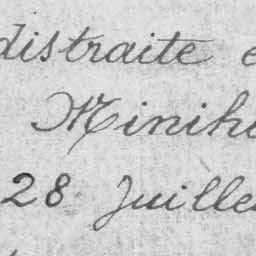 distraite e
Minihi
28 Juille